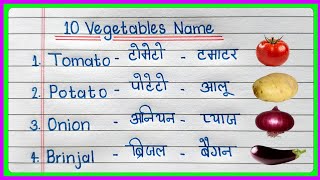 10 Vegetables Name
1. Tomato - टोमेटो - टमाटर
2. Potato - पोटेटो - आलू
3. Onion - अनियन - प्याज
4. Brinjal - ब्रिंजल - बैंगन